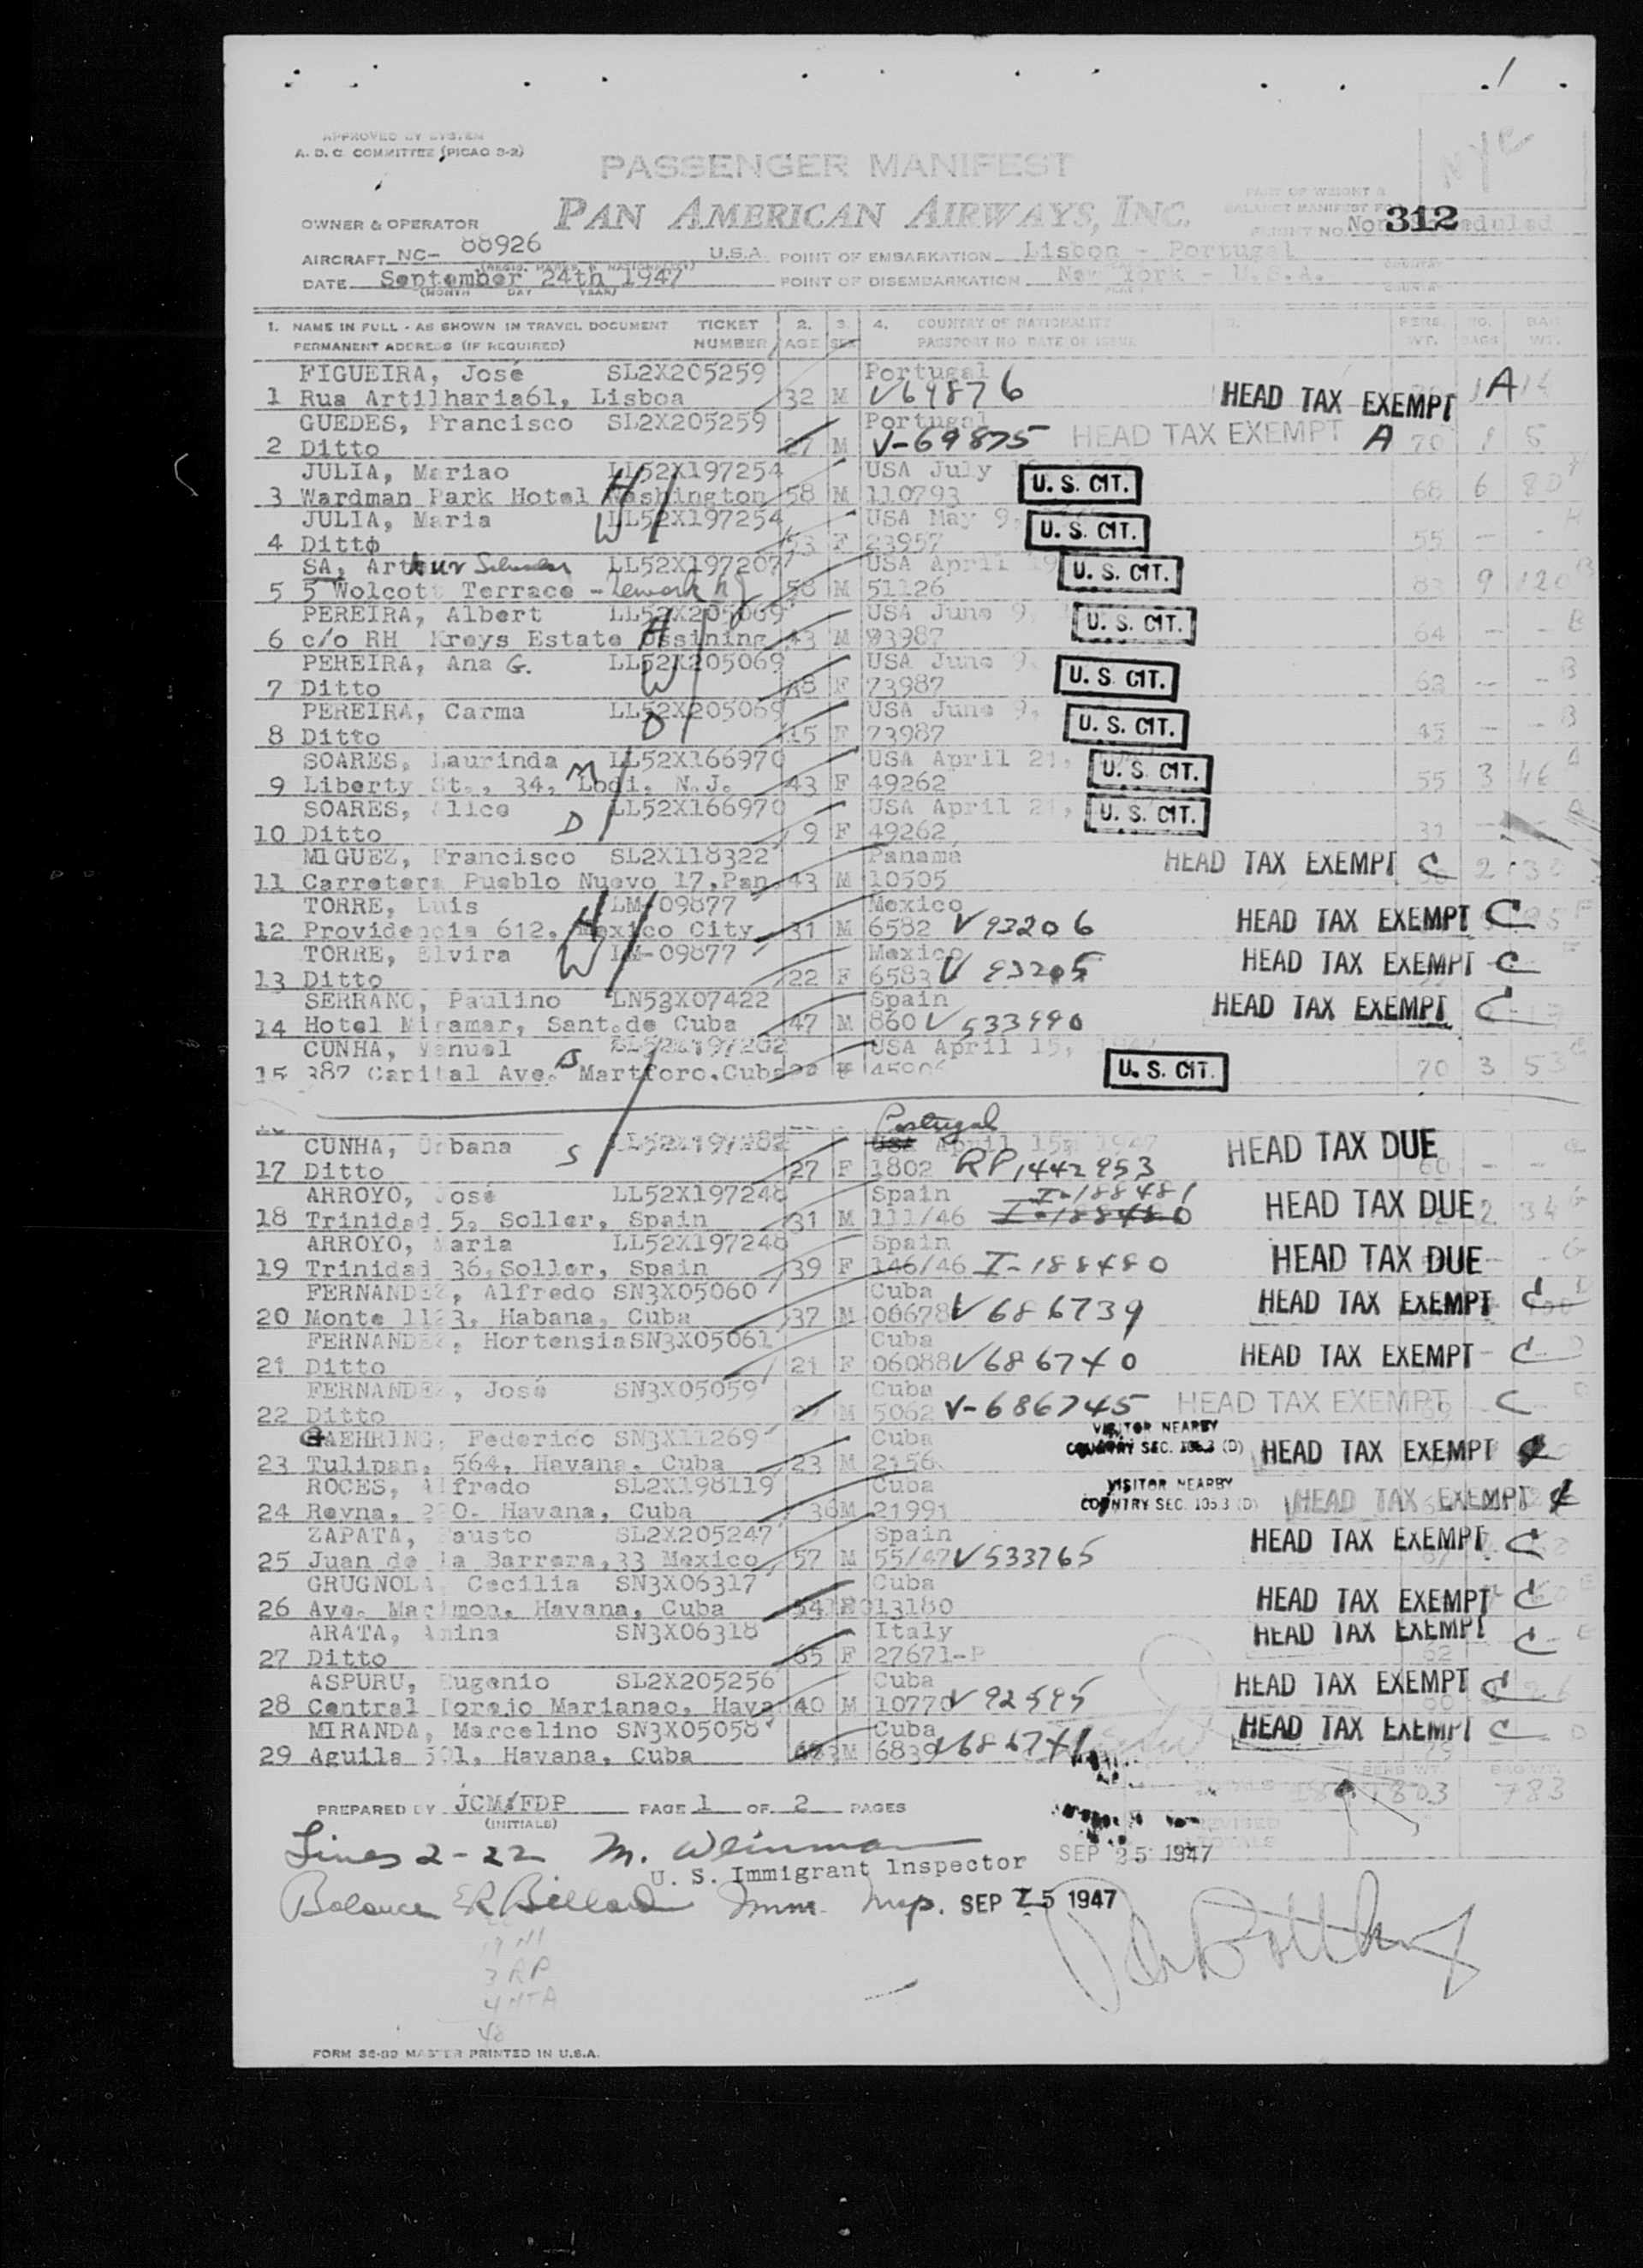 APPROVED BY SYSTEM
A. D. C. COMMITTEE (PICAO 3-2)
NYC
PASSENGER MANIFEST
PAN AMERICAN AIRWAYS, INC.
PART OF WEIGHT &
BALANCE MANIFEST FOR
FLIGHT NO. Non Scheduled
312
OWNER & OPERATOR
AIRCRAFT NC- 88926 U.S.A. POINT OF EMBARKATION Lisbon - Portugal
DATE September 24th 1947 POINT OF DISEMBARKATION New York - U.S.A.
(MONTH DAY YEAR)
1. NAME IN FULL - AS SHOWN IN TRAVEL DOCUMENT TICKET 2. 3. 4. COUNTRY OF NATIONALITY PERS. NO. BAG
PERMANENT ADDRESS (IF REQUIRED) NUMBER AGE SEX PASSPORT NO DATE OF ISSUE WT. BAGS WT.
FIGUEIRA, José SL2X205259 Portugal
1 Rua Artilharia61, Lisboa 32 M V69876 HEAD TAX EXEMPT 1 A
GUEDES, Francisco SL2X205259 Portugal
2 Ditto 27 M V-69875 HEAD TAX EXEMPT A 70 1 5
JULIA, Mariao LL52X197254 USA July
3 Wardman Park Hotel Washington 58 M 110793 U. S. CIT. 68 6 80
H
JULIA, Maria LL52X197254 USA May 9,
W
4 Ditto 53 F 23957 U. S. CIT. 55 - -
SA, Arthur LL52X197207 USA April
5 5 Wolcott Terrace - Newark NJ 58 M 51126 U. S. CIT. 83 9 120 B
PEREIRA, Albert LL52X205069 USA June 9,
6 c/o RH Kreys Estate Ossining 43 M 73987 U. S. CIT. 64 - - B
H
PEREIRA, Ana G. LL52X205069 USA June 9,
W
7 Ditto 38 F 73987 U. S. CIT. - - B
PEREIRA, Carma LL52X205069 USA June 9,
D
8 Ditto 15 F 73987 U. S. CIT. 45 - - B
SOARES, Laurinda LL52X166970 USA April 21,
M
9 Liberty St., 34, Lodi, N.J. 43 F 49262 U. S. CIT. 55 3 46 A
SOARES, Alice LL52X166970 USA April 21,
D
10 Ditto 9 F 49262 U. S. CIT. 31 A
MIGUEZ, Francisco SL2X118322 Panama
11 Carretera Pueblo Nuevo 17,Pan 43 M 10505 HEAD TAX EXEMPT C 2
TORRE, Luis LM-09877 Mexico
H
12 Providencia 612, Mexico City 31 M 6582 V 93206 HEAD TAX EXEMPT C
TORRE, Elvira LM-09877 Mexico
W
13 Ditto 22 F 6583 V 93205 HEAD TAX EXEMPT C
SERRANO, Paulino LN53X07422 Spain
14 Hotel Miramar, Sant.de Cuba 47 M 860 V 533990 HEAD TAX EXEMPT C
CUNHA, Manuel USA April 15,
B
15 387 Capital Ave. U. S. CIT. 70 3 53
Portugal
CUNHA, Urbana April 15, 1947
S
17 Ditto 27 F 1802 RP,1442953 HEAD TAX DUE 60 - -
ARROYO, José LL52X197248 Spain I-188481
18 Trinidad 5, Soller, Spain 31 M 111/46 I-188480 HEAD TAX DUE 2 34
ARROYO, Maria LL52X197248 Spain
19 Trinidad 36,Soller, Spain 39 F 146/46 I-188480 HEAD TAX DUE - - G
FERNANDEZ, Alfredo SN3X05060 Cuba
20 Monte 1123, Habana, Cuba 37 M 08678 V 686739 HEAD TAX EXEMPT C
FERNANDEZ, HortensiaSN3X05061 Cuba
21 Ditto 21 F 06088 V686740 HEAD TAX EXEMPT C
FERNANDEZ, José SN3X05059 Cuba
22 Ditto 27 M 5062 V-686745 HEAD TAX EXEMPT C
GAEHRING, Federico SN3X11269 Cuba VISITOR NEARBY
23 Tulipan, 564, Havana, Cuba 23 M 2156 COUNTRY SEC. 105.3 (D) HEAD TAX EXEMPT C
ROCES, Alfredo SL2X198119 Cuba VISITOR NEARBY
24 Reyna, 220- Havana, Cuba 36M 21991 COUNTRY SEC. 105.3 (D) HEAD TAX EXEMPT C
ZAPATA, Fausto SL2X205247 Spain
25 Juan de la Barrera,33 Mexico 57 M 55/47 V533765 HEAD TAX EXEMPT C
GRUGNOLA, Cecilia SN3X06317 Cuba
26 Ave. Marimon, Havana, Cuba 54 F 13180 HEAD TAX EXEMPT C
ARATA, Anina SN3X06318 Italy
27 Ditto 65 F 27671-P HEAD TAX EXEMPT C
ASPURU, Eugenio SL2X205256 Cuba
28 Central Torejo Marianao, Hava 40 M 10770 V 92595 HEAD TAX EXEMPT C
MIRANDA, Marcelino SN3X05058 Cuba
29 Aguila 501, Havana, Cuba M 6839 V686741 HEAD TAX EXEMPT C
PERS WT. BAG WT.
TOTALS 1803 783
PREPARED BY JCM/FDP PAGE 1 OF 2 PAGES
(INITIALS)
REVISED
TOTALS
Lines 2-22 M. Weinman
U. S. Immigrant Inspector SEP 25 1947
Balance ER Billard Imm. Insp. SEP 25 1947
19 NI
3 RP
4 HTA
FORM 36-39 MASTER PRINTED IN U.S.A.